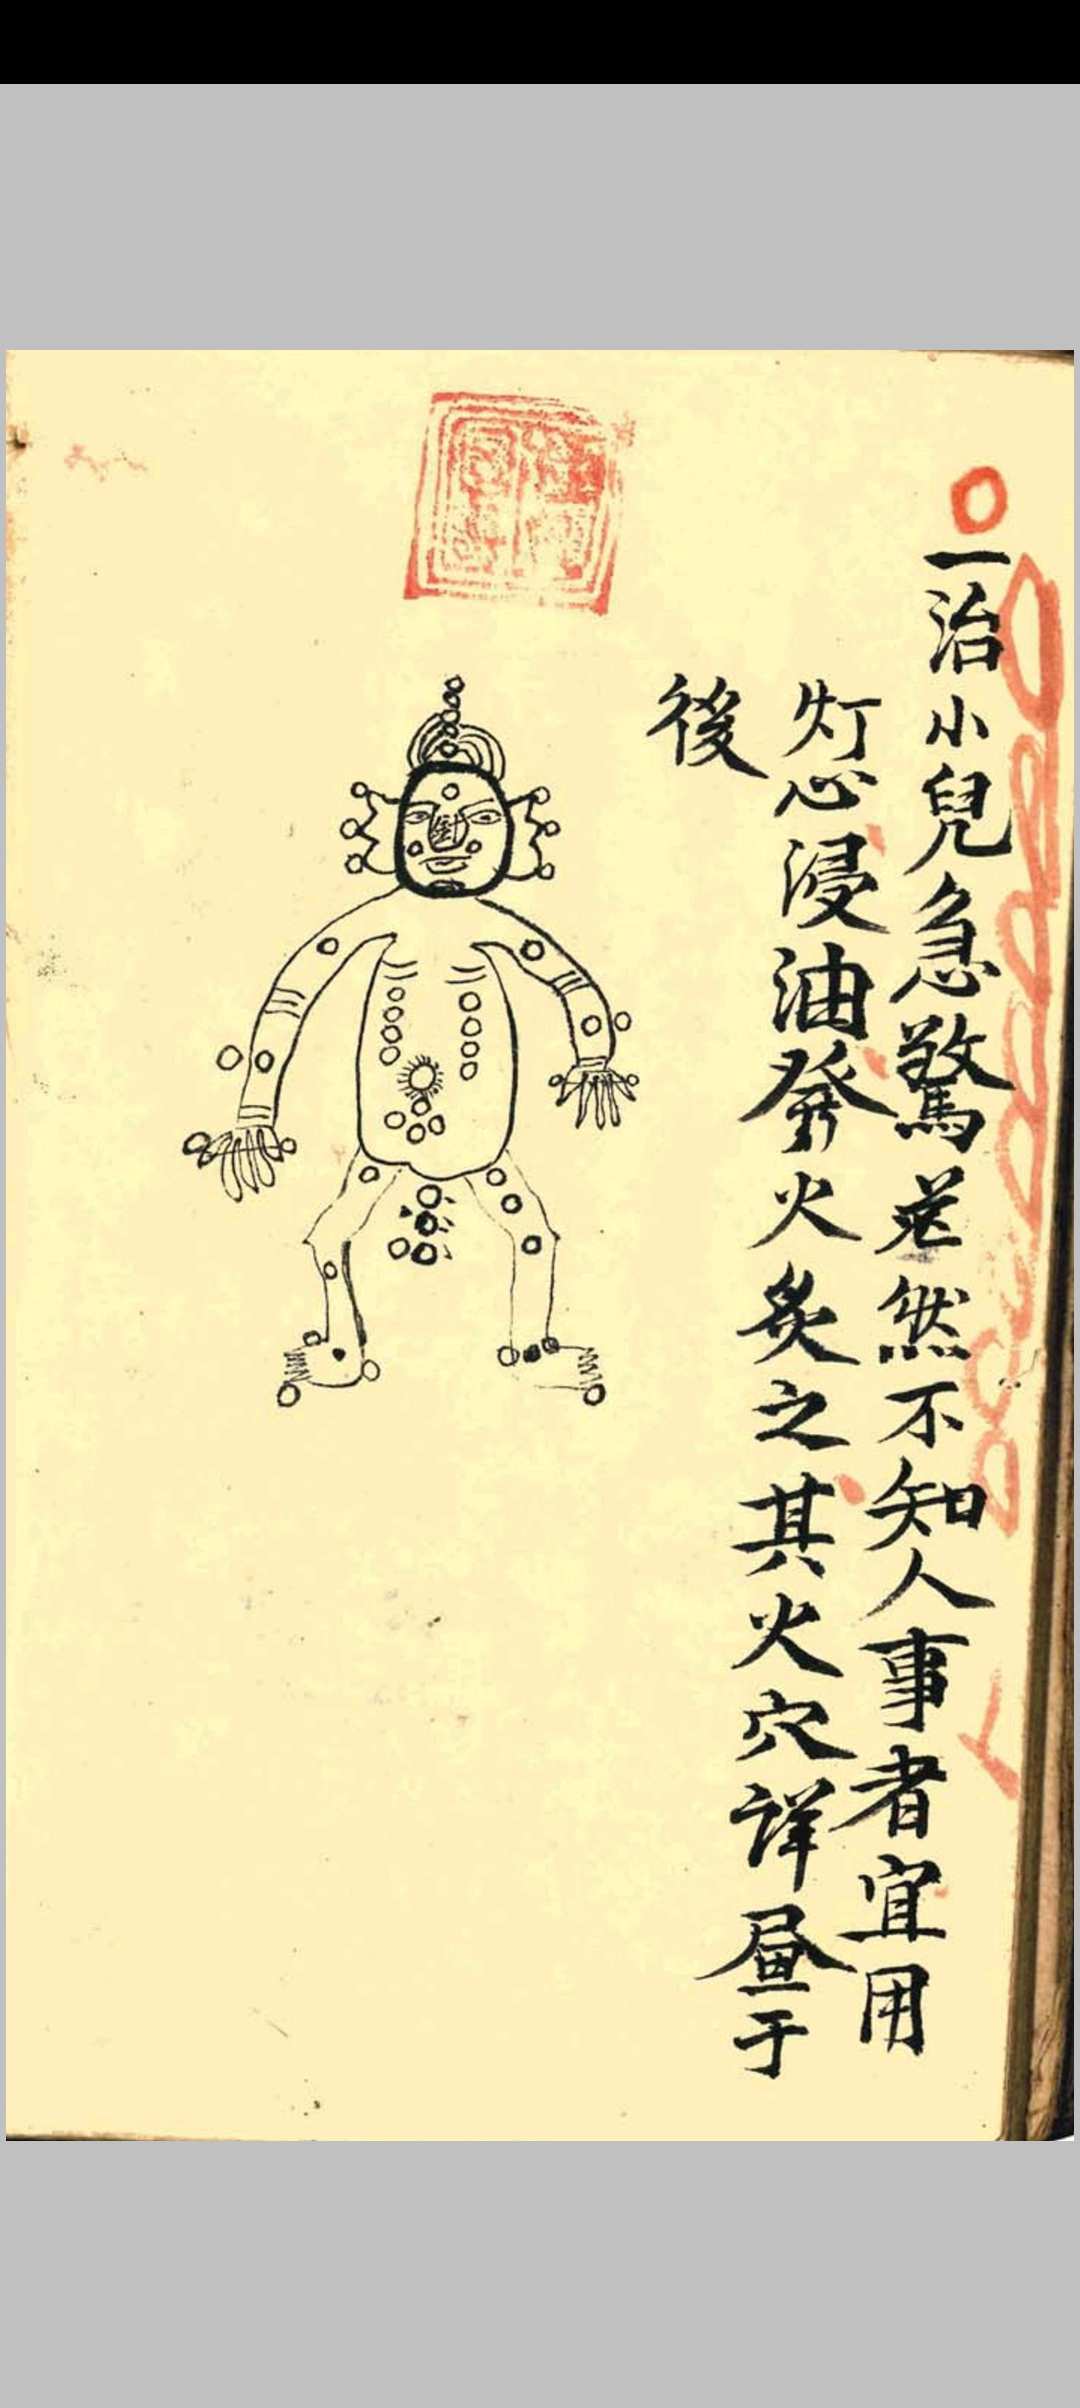 一治小兒急驚茫然不知人事者宜用
灯心浸油發火炙之其火穴詳昼于
後